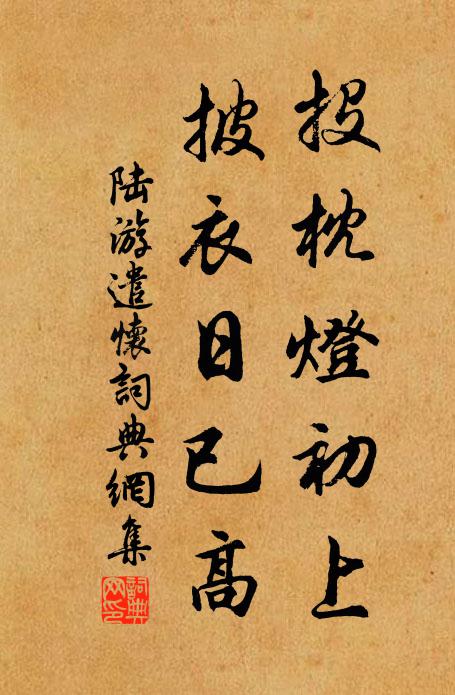 投枕燈初上
披衣日已高
陆游遣懷詞典網集
詞典网印